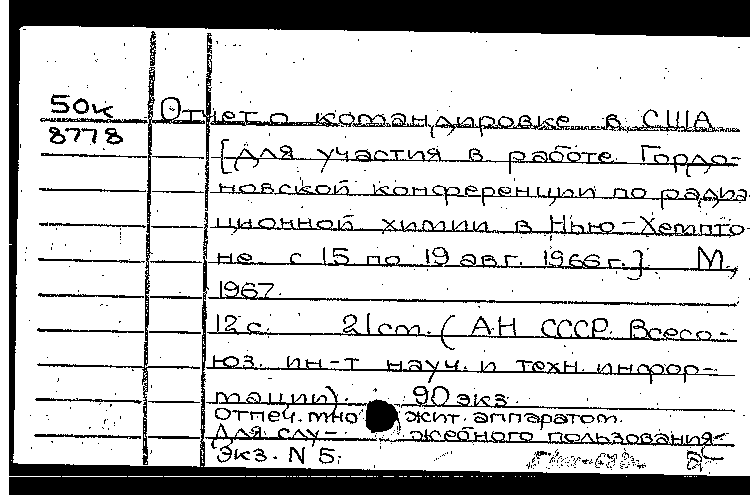 50к Отчет о командировке в США
8778
[Для участия в работе Гордо-
новской конференции по радиа-
ционной химии в Нью-Хемпто-
не с 15 по 19 авг. 1966 г.]. М.,
1967.
12 с. 21 cm. (АН СССР. Всесо-
юз. ин-т науч. и техн. инфор-
мации). 90 экз.
Отпеч. множит. аппаратом.
Для служебного пользования
Экз. N 5.